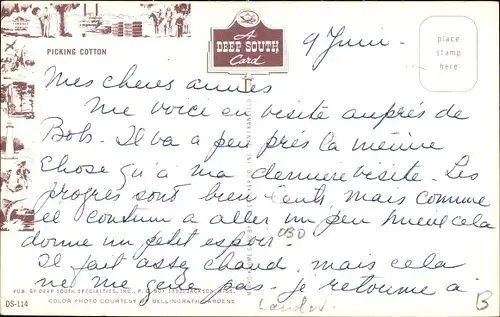 PICKING COTTON
A
DEEP SOUTH
Card
9 Juin -
place
stamp
here
Mes chères amies
Me voici en visite auprès de
Bob. Il va a peu près la même
chose qu'à ma dernière visite. Les
progrès sont bien lents, mais comme
il continu a aller un peu mieux cela
donne un petit espoir.
030
Il fait assez chaud, mais cela
ne me gène pas. Je retourne à
PUB. BY DEEP SOUTH SPECIALTIES, INC., P. O. BOX 1352, JACKSON, MISS.
DS-114
COLOR PHOTO COURTESY OF BELLINGRATH GARDENS
B